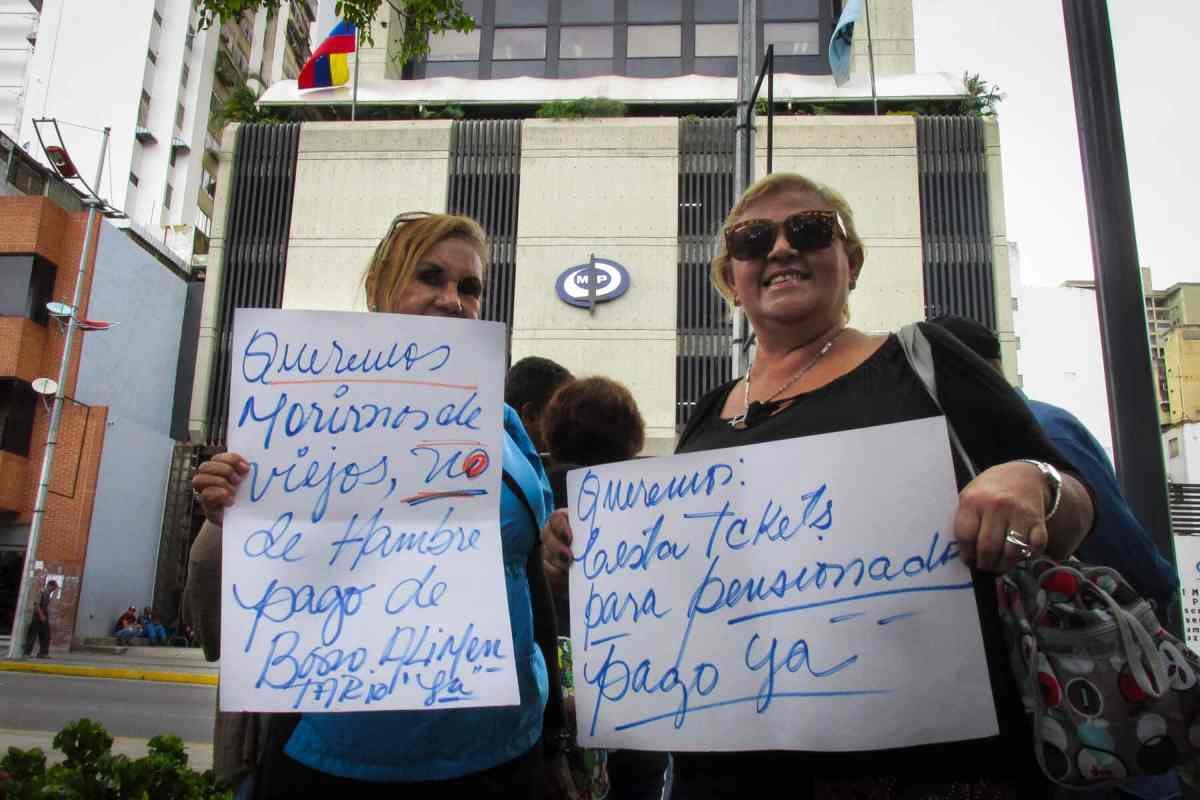 MP
Queremos
Morirnos de
viejos, no
de Hambre
pago de
Bono. ALiMen
TARio "Ya"
Queremos:
Cesta Tickets
para pensionado
pago ya